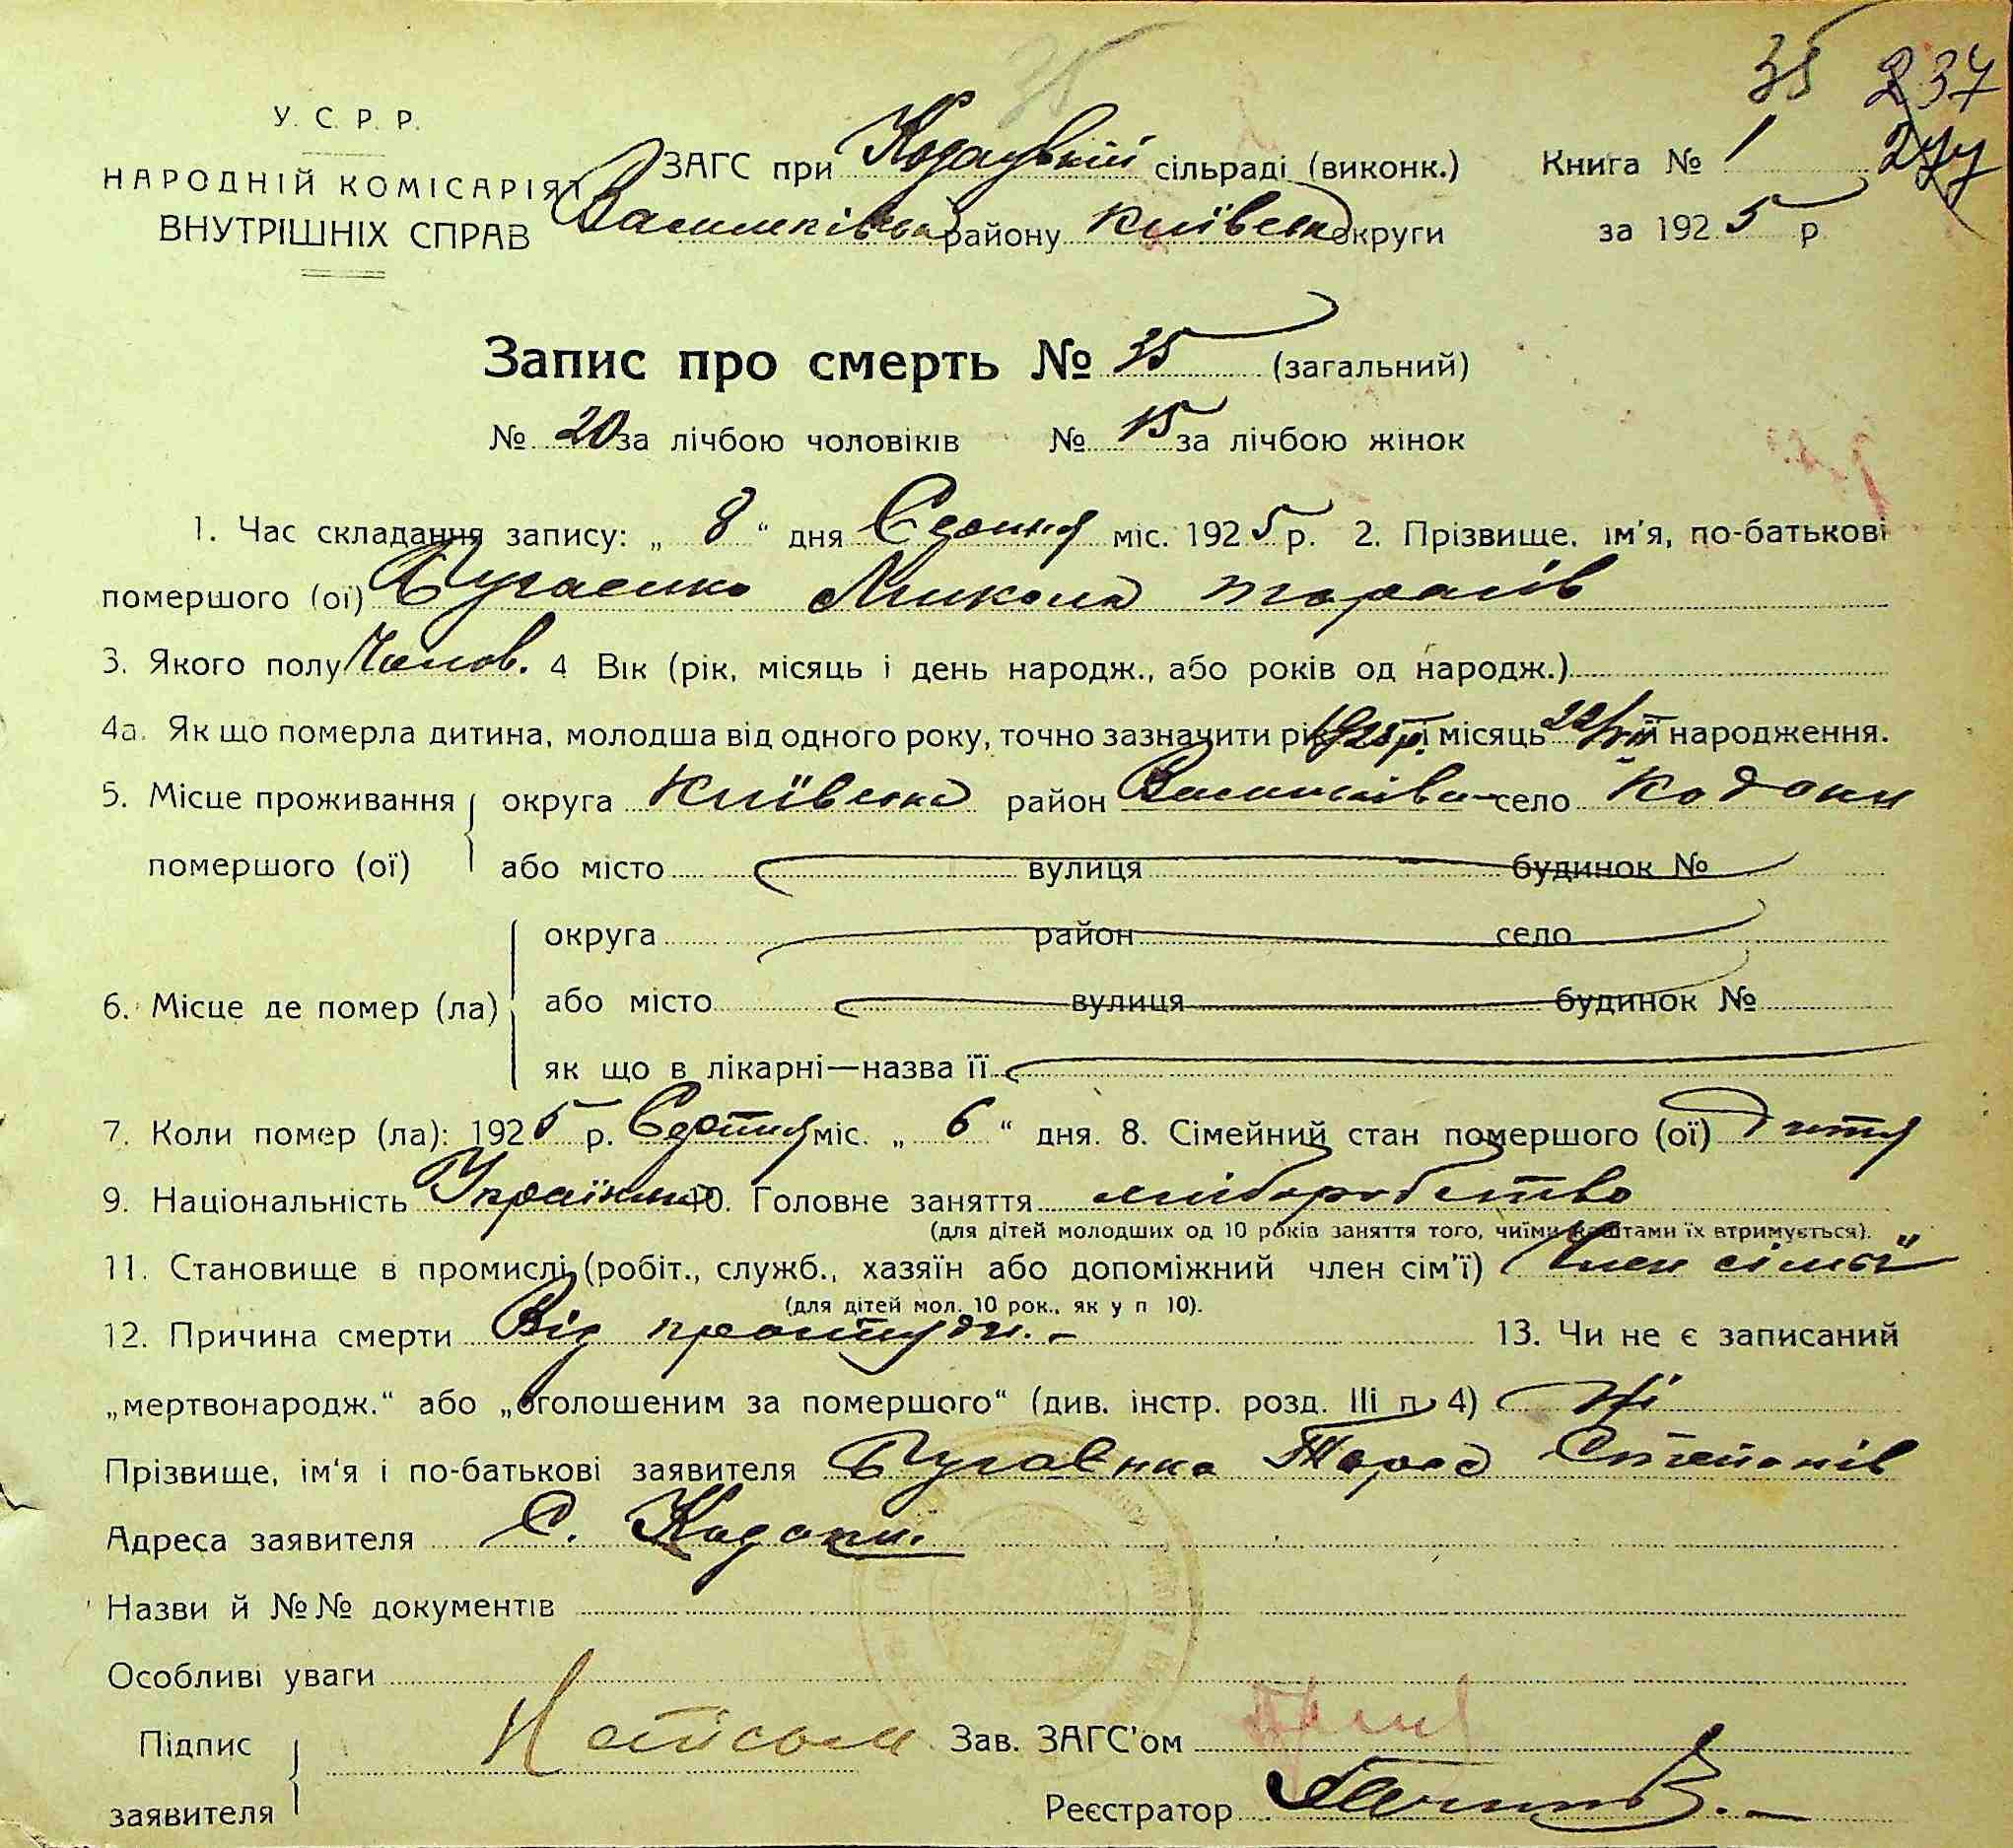 35 237
У. С. Р. Р.
ЗАГС при Кодацькій сільраді (виконк.) Книга № 1
НАРОДНІЙ КОМІСАРІЯТ
ВНУТРІШНІХ СПРАВ
району Київсько округи за 1925 р
Запис про смерть № 35 (загальний)
№ 20 за лічбою чоловіків № 15 за лічбою жінок
1. Час складання запису: „ 8 “ дня міс. 1925 р. 2. Прізвище, ім'я, по-батькові
помершого (ої) Микола тарасів
3. Якого полу Чолов. 4 Вік (рік, місяць і день народж., або років од народж.)
4а. Як що померла дитина, молодша від одного року, точно зазначити рік 1925 р. її місяць 22/VIII її народження.
5. Місце проживання округа Київсько район село Кодаки
помершого (ої) або місто вулиця будинок №
округа район село
6. Місце де помер (ла) або місто вулиця будинок №
як що в лікарні—назва її
7. Коли помер (ла): 1925 р. міс. „ 6 “ дня. 8. Сімейний стан помершого (ої) Дитя
9. Національність 10. Головне заняття хліборобство
(для дітей молодших од 10 років заняття того, чиїми коштами їх втримується).
11. Становище в промислі (робіт., служб., хазяїн або допоміжний член сім'ї) Член сімьї
(для дітей мол. 10 рок., як у п 10).
12. Причина смерти Від простуди.- 13. Чи не є записаний
„мертвонародж.“ або „оголошеним за помершого“ (див. інстр. розд. III п 4) Ні
Прізвище, ім'я і по-батькові заявителя Тарас Степанів
Адреса заявителя С. Кодаки.
Назви й №№ документів
Особливі уваги
Підпис Зав. ЗАГС'ом
заявителя Реєстратор